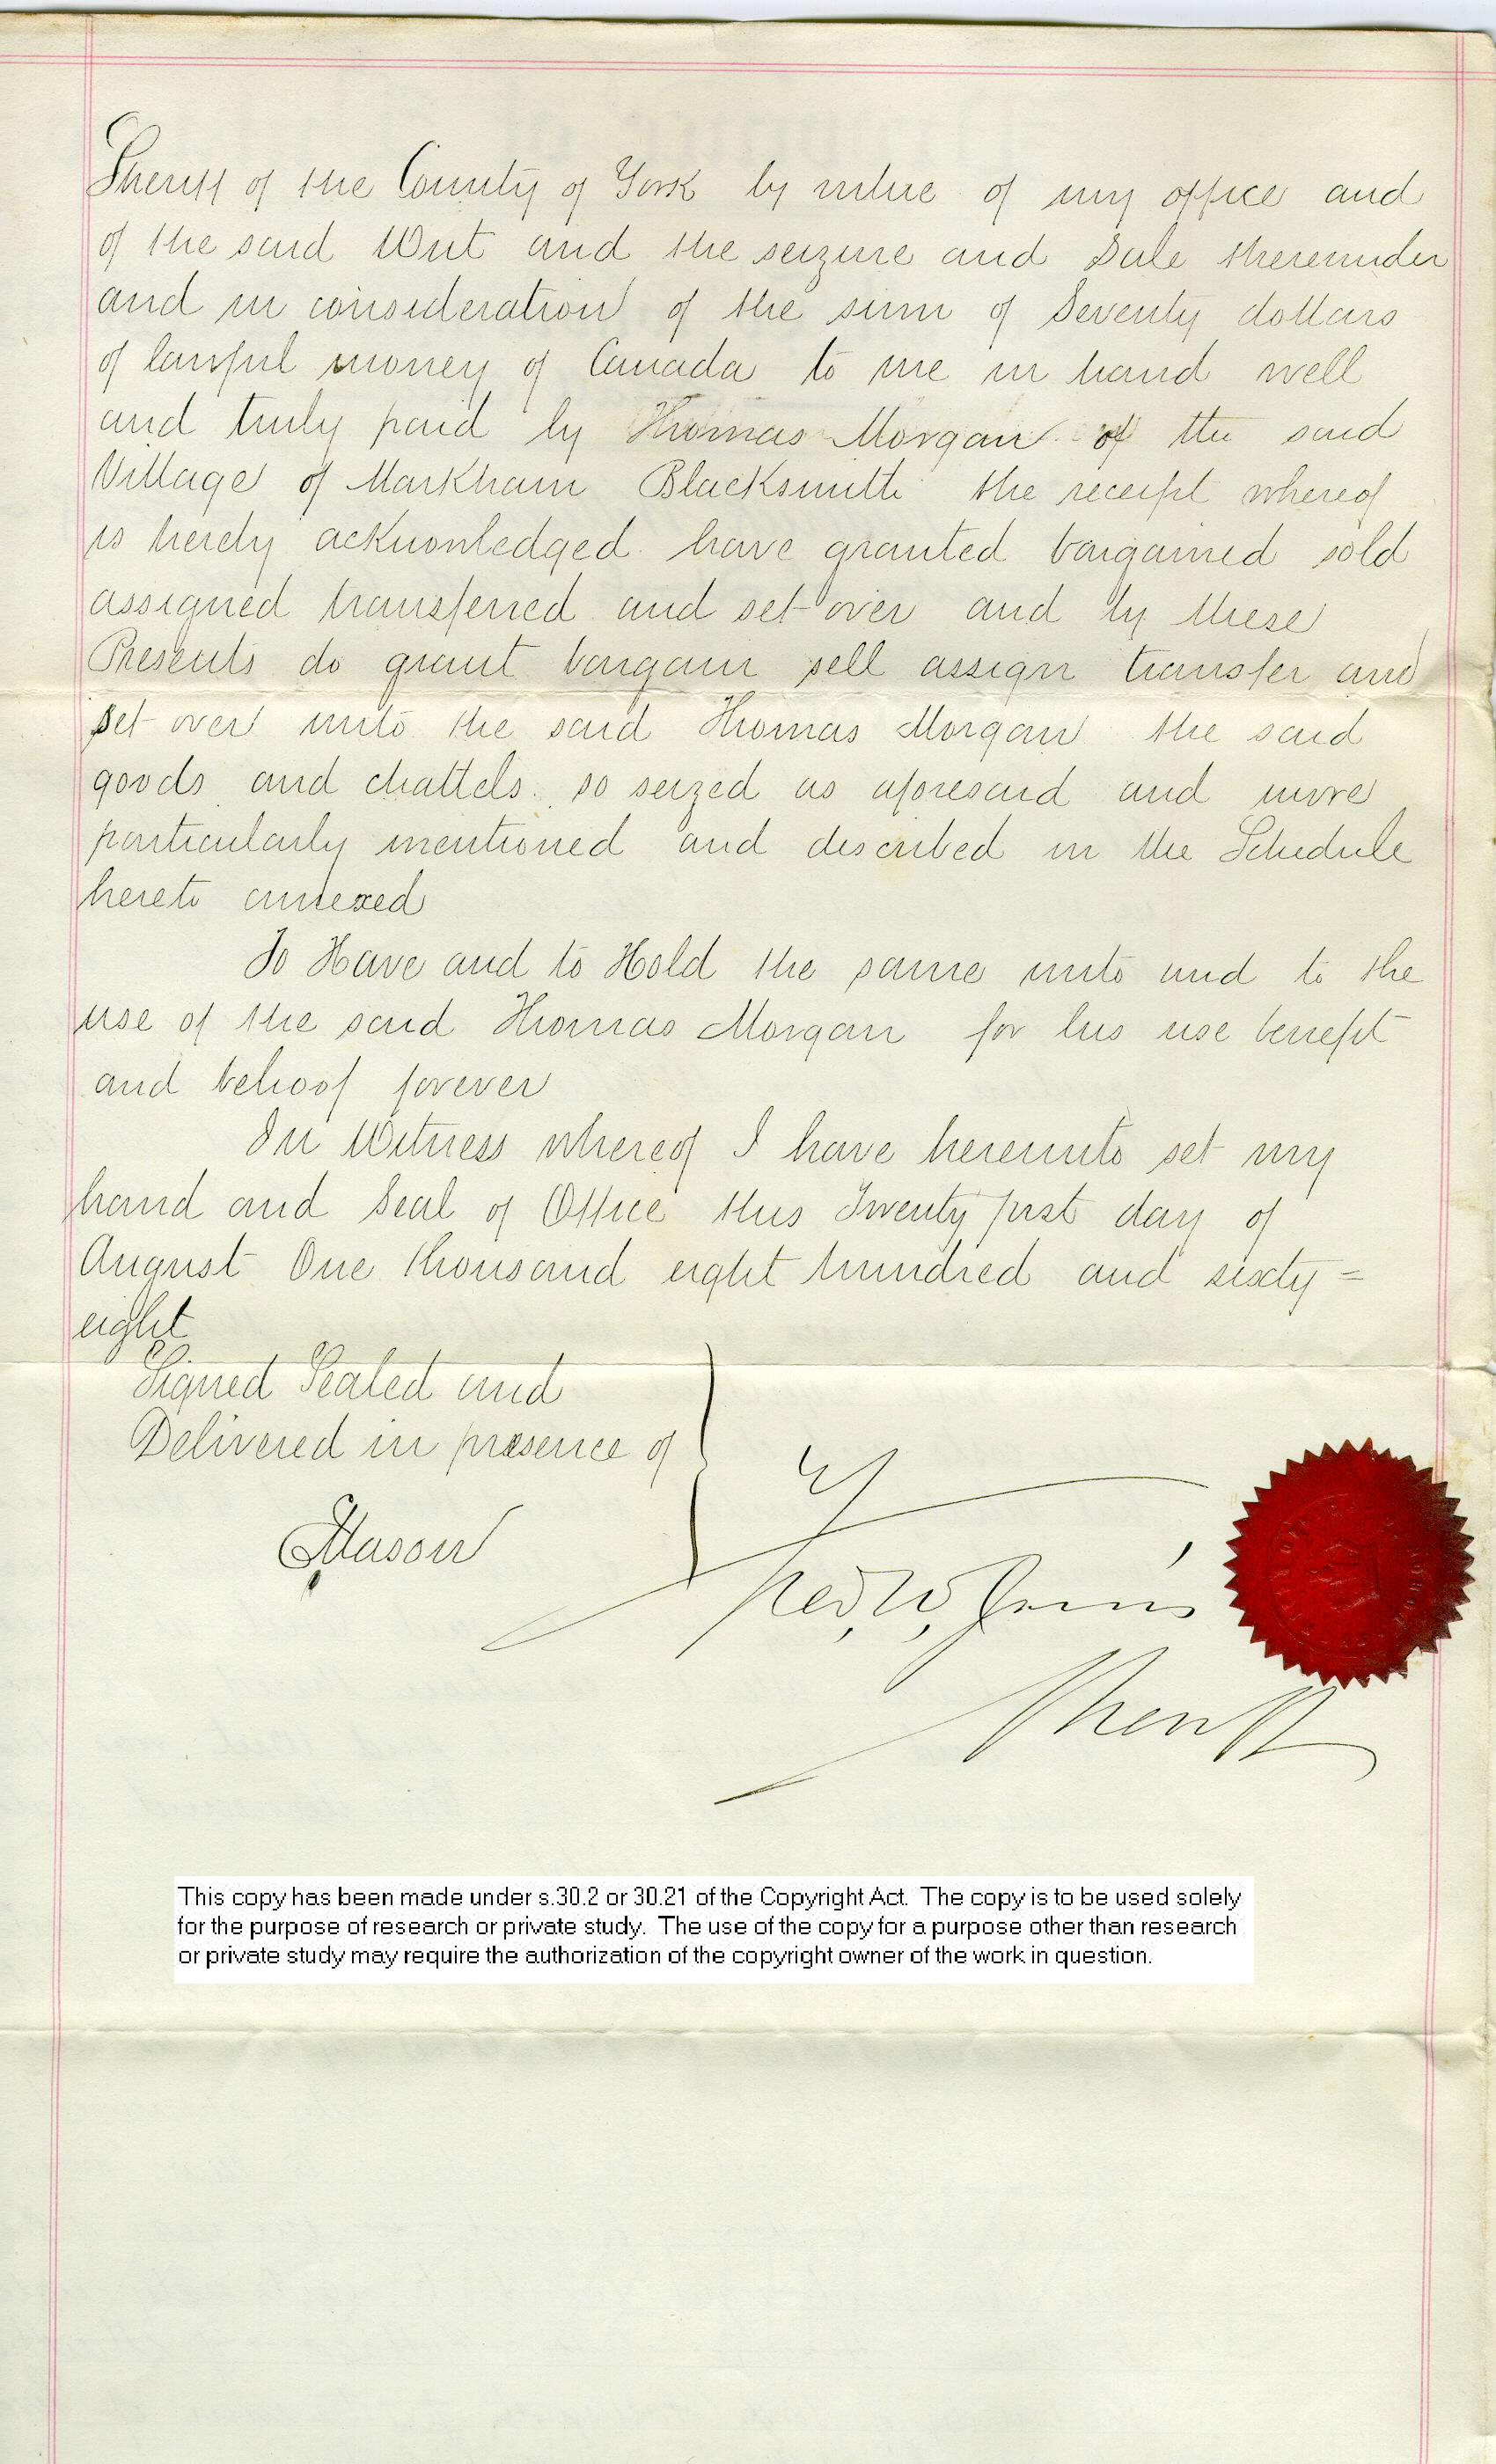 Sheriff of the County of York by virtue of my office and
of the said Writ and the seizure and Sale thereunder
and in consideration of the sum of Seventy dollars
of lawful money of Canada to me in hand well
and truly paid by Thomas Morgan of the said
Village of Markham Blacksmith the receipt whereof
is hereby acknowledged have granted bargained sold
assigned transferred and set over and by these
Presents do grant bargain sell assign transfer and
set over unto the said Thomas Morgan the said
goods and chattels so seized as aforesaid and more
particularly mentioned and described in the Schedule
hereto annexed
To Have and to Hold the same unto and to the
use of the said Thomas Morgan for his use benefit
and behoof forever
In Witness whereof I have hereunto set my
hand and Seal of Office this Twenty first day of
August One thousand eight hundred and sixty=
eight
Signed Sealed and
Delivered in presence of
Mason
Fred, W, Jarvis
Sheriff
This copy has been made under s.30.2 or 30.21 of the Copyright Act. The copy is to be used solely
for the purpose of research or private study. The use of the copy for a purpose other than research
or private study may require the authorization of the copyright owner of the work in question.